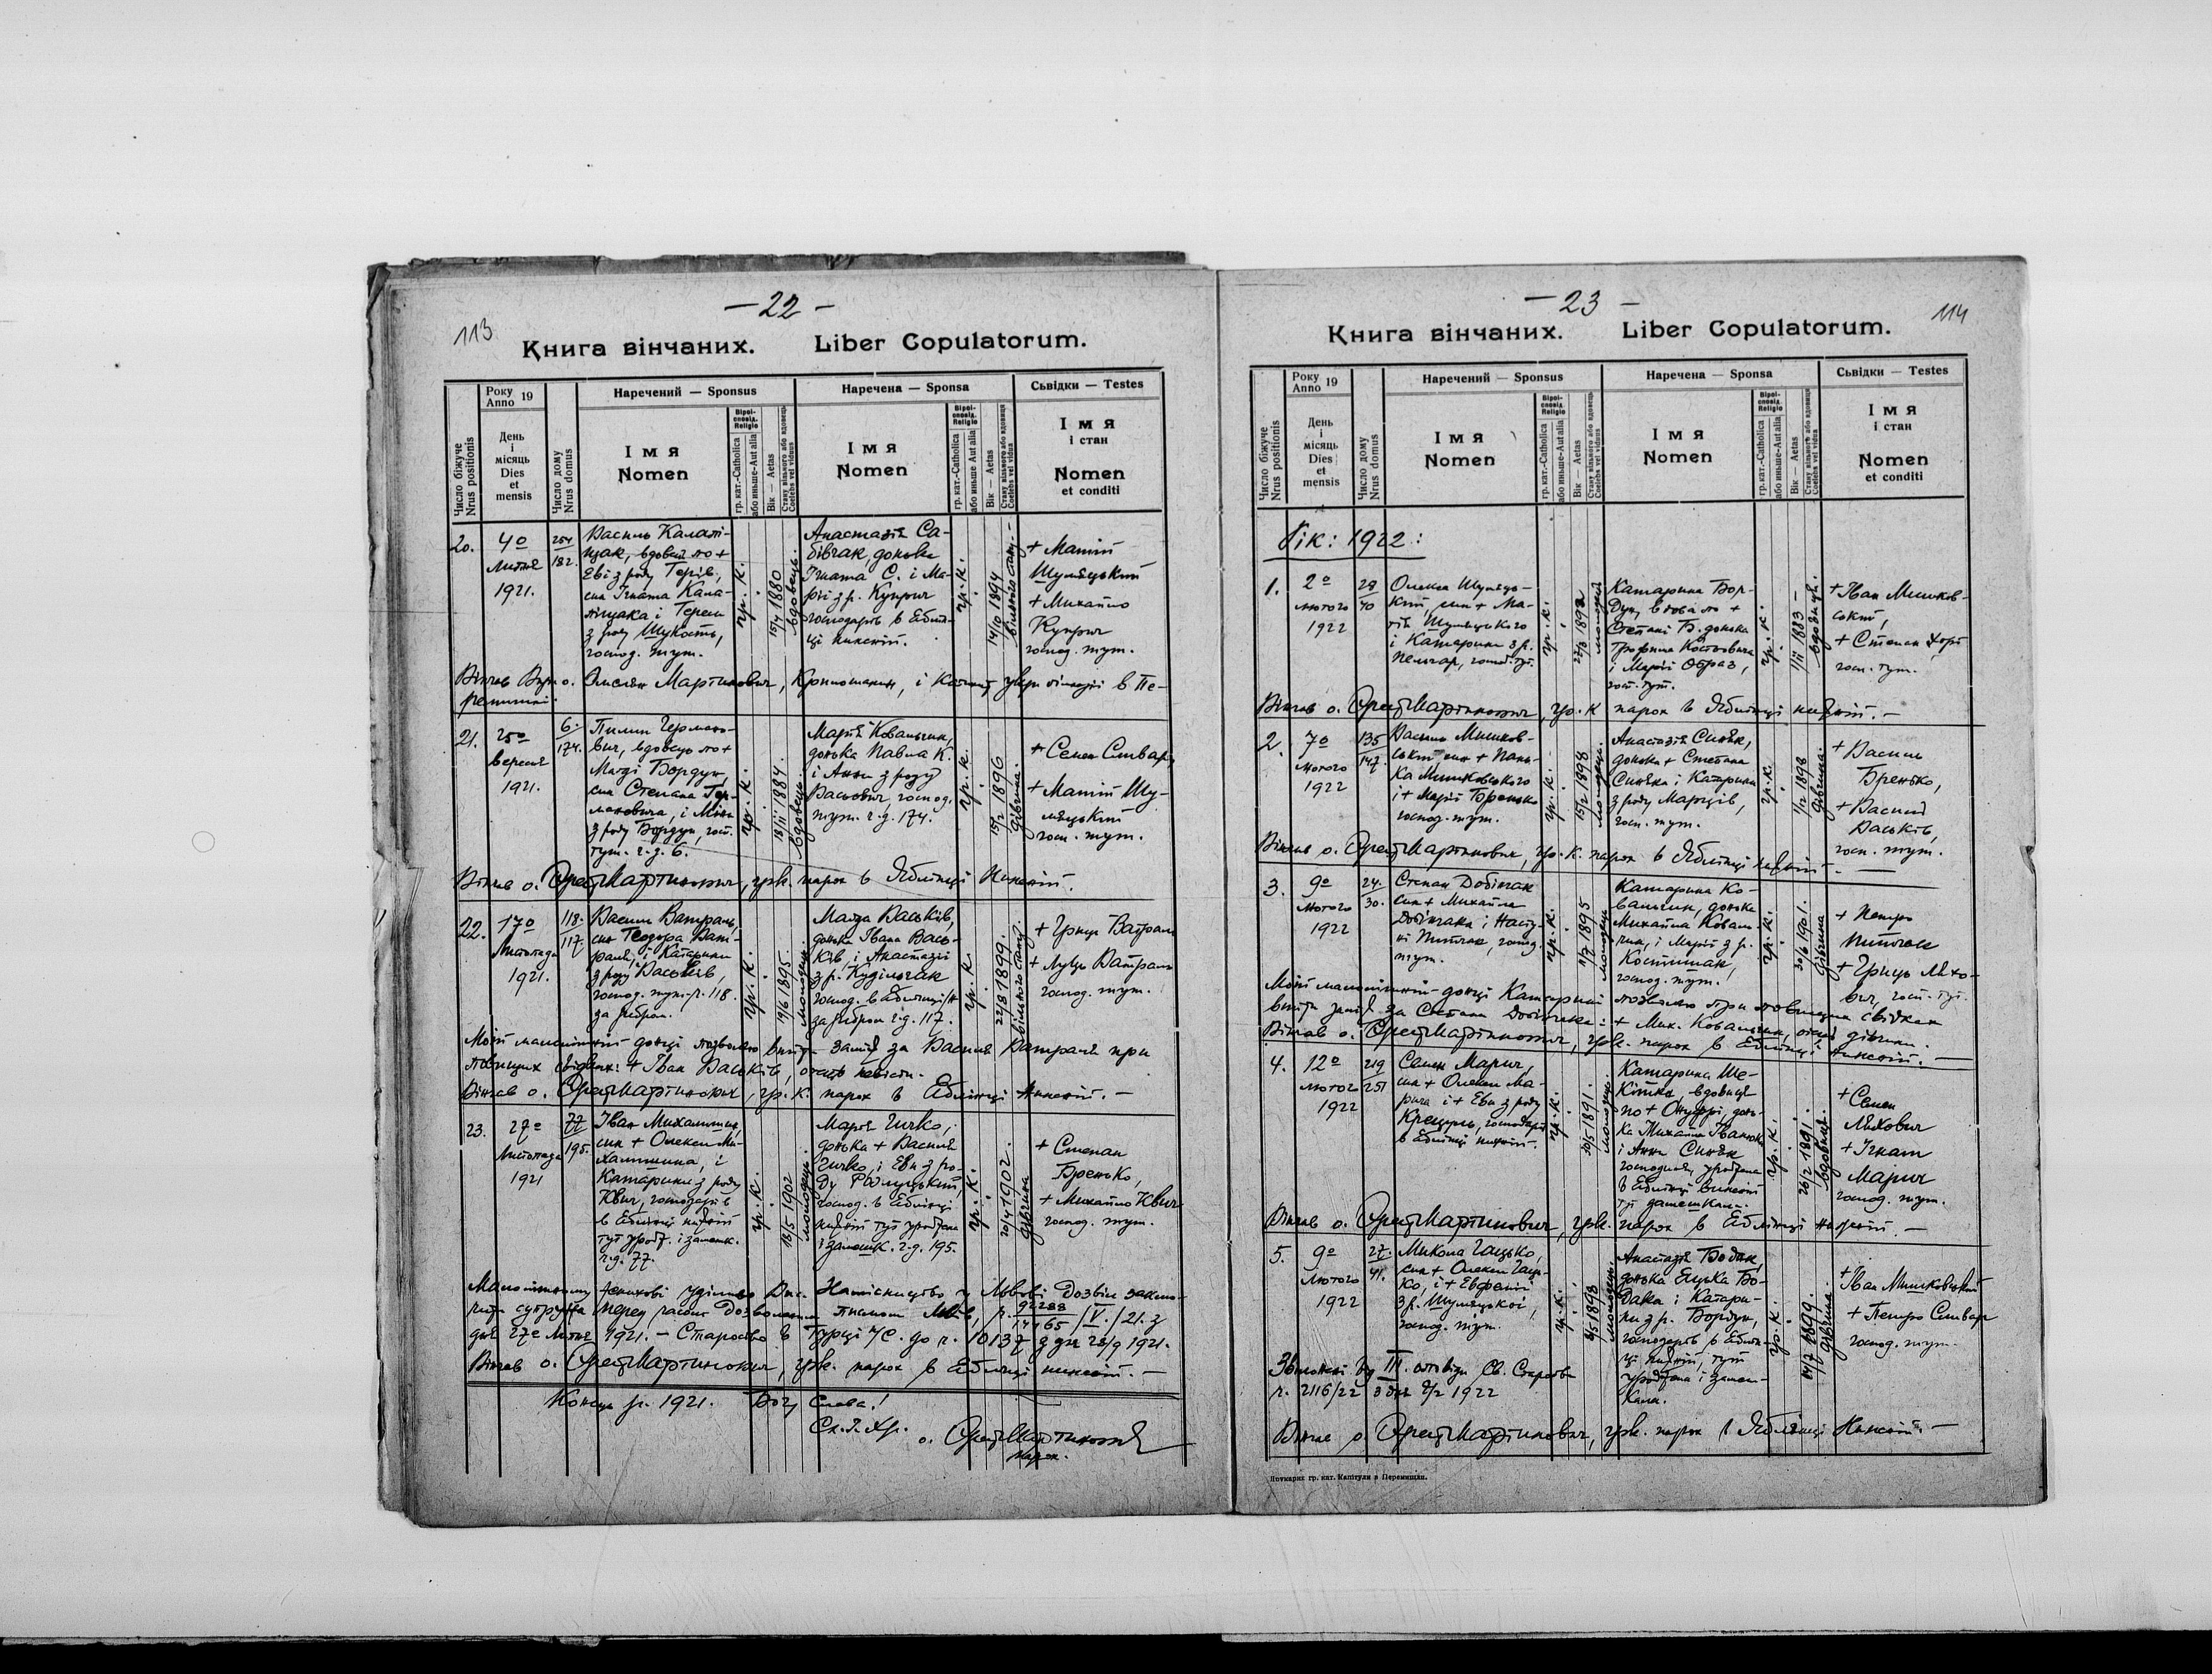 — 22 —
113
Книга вінчаних. Liber Copulatorum.
Число біжуче
Nrus positionis
Року
Anno 19
День
і
місяць
Dies
et
mensis
Число дому
Nrus domus
Наречений — Sponsus
Імя
Nomen
Віроісповід.
Religio
гр. кат.-Catholica
або иньше-Aut alia
Вік — Aetas
Стану вільного або вдовець
Coelebs vel viduus
Наречена — Sponsa
Імя
Nomen
Віроісповід.
Religio
гр. кат.-Catholica
або иньше Aut alia
Вік — Aetas
Стану вільного або вдовиця
Coelebs vel vidua
Сьвідки — Testes
Імя
і стан
Nomen
et conditi
20.
4о
Липня
1921.
254
182.
Василь
вдовець по +
Еви з роду
син Ігната
і
з роду
господ. тут.
гр. к.
15/4 1880
вдовець.
Анастазія Са-
бівчак, донька
Ігната С. і Ма-
рії з р. Куприч
господарів в Яблін-
ці нижній.
гр. к.
14/10 1894
вільного стану. —
+ Матій
Шумяцький
+ Михайло
Куприч
господ. тут.
Мартинович,
21.
25о
вересня
1921.
6
174.
Пилип Германо-
вич, вдовець по +
Магді Бордун,
син Степана Гер-
мановича, і
з роду Бордун, госп.
тут. ч. д. 6.
гр. к.
18/11 1884.
вдовець.
Марія Ковальчин,
донька Павла К.
і Анни з роду
Васькович, господ.
тут. ч. д. 174.
гр. к.
15/2 1896
дівчина.
+ Семен Сливар,
+ Матій Шу-
мяцький
госп. тут.
Вінчав о. Орест Мартинович, грк. парох в Яблінці Нижній.
22.
17о
Листопада
1921.
118.
117.
Василь Ватраль,
син Теодора Ват-
раля, і Катарини
з роду Васьків,
господ. тут. ч. 118.
за ребром.
гр. к.
19/6 1895.
молодець.
Магда Васьків,
донька Івана Вась-
ків, і Анастазії
з р. Кудільчак
господ. в Яблінці Н
за ребром ч. д. 117.
гр. к.
22/8 1899.
вільного стану.
+ Гриць Ватраль
+ Луць Ватраль
господ. тут.
Моїй малолітній доньці позваляю вийти заміж за Василя Ватраля при
повищих свідках: + Іван Васьків, отець невісти.
Вінчав о. Орест Мартинович, гр. к. парох в Яблінці Нижній. —
23.
27о
Листопада
1921
77
195.
Іван Михалишин,
син + Олекси Ми-
халишина, і
Катарини з роду
Квич, господарів
в Яблінці нижній
тут урод. і замешк.
ч. д. 77.
гр. к.
18/5 1902
молодець.
Марія Гичко,
донька + Василя
Гичко, і Еви з ро-
ду Радлуцький,
господ. в Яблінці
нижній тут уроджена
і замешк. ч. д. 195.
гр. к.
20/4 1902.
дівчина
+ Степан
Бренько,
+ Михайло Квич
господ. тут.
Малолітному женихові уділило Вис. Намісництво у Львові дозвіл заклю-
1921. — Староство в Турці
Вінчав о. Орест Мартинович, грк. парох в Яблінці нижній. —
Конець р. 1921. Богу Слава!
Сл. І. Хр.
о. Орест Мартинович
парох.
— 23 —
114
Книга вінчаних. Liber Copulatorum.
Число біжуче
Nrus positionis
Року
Anno 19
День
і
місяць
Dies
et
mensis
Число дому
Nrus domus
Наречений — Sponsus
Імя
Nomen
Віроісповід.
Religio
гр. кат.-Catholica
або иньше-Aut alia
Вік — Aetas
Стану вільного або вдовець
Coelebs vel viduus
Наречена — Sponsa
Імя
Nomen
Віроісповід.
Religio
гр. кат.-Catholica
або иньше-Aut alia
Вік — Aetas
Стану вільного або вдовиця
Coelebs vel vidua
Сьвідки — Testes
Імя
і стан
Nomen
et conditi
Рік: 1922:
1.
2о
лютого
1922
29
40
Олекса Шумяць-
кий, син + Ма-
тія Шумяцького
і Катарини з р.
госпо. тут.
гр. к.
молодець
Катарина Бор-
дун, вдова по +
Степані Б. донька
Трофима Костьовича
і Марії Образ,
госп. тут.
гр. к.
1/11 1883 —
вдовиця.
+ Іван Мишков-
ський,
+ Степан
госп. тут.
Вінчав о. Орест Мартинович, гр. к парох в Яблінці нижній. —
2.
7о
лютого
1922
135
147.
Василь Мишков-
ський син + Пань-
ка Мишковського
і + Марії
господ. тут.
гр. к.
15/2 1898
молодець.
Анастазія Синяк,
донька + Степана
Синяка і Катарини
з роду Марців,
госп. тут.
гр. к.
1/2 1898
дівчина.
+ Василь
Бренько,
+ Василь
Васьків,
госп. тут.
Вінчав о. Орест Мартинович, гр. к. парох в Яблінці нижній. —
3.
9о
Лютого
1922
24.
30.
Степан Добінчак
син + Михайла
Добінчака і Насту-
ні господ.
тут.
гр. к.
1/7 1895
молодець
Катарина Ко-
вальчин, донька
Михайла Коваль-
чин, і Марії з р.
Костишак,
господ. тут.
гр. к.
30/6 901.
дівчина
+ Петро
+ Гриць Міхо-
вич, госп. тут.
Моїй малолітній доньці Катарині позваляю при повищих свідках
вийти заміж за Степана Добінчака: + Мих. Ковальчин, отець дівчини.
Вінчав о. Орест Мартинович, грк. парох в Яблінці Нижній. —
4.
12о
лютого
1922
219
251
Семен Марич,
син + Олекси Ма-
рича і + Еви з роду
Крецуль, господарів
в Яблінці нижній.
гр. к.
30/5 1891.
молодець.
Катарина Ше-
вдовиця
по + Онуфрі, донь-
ка Михайла
і Анни Синяк
господарів, уроджена
в Яблінці вижній
тут замешкала.
гр. к.
26/2 1891.
вдовиця.
+ Семен
Міхович
+ Ігнат
Марич
господ. тут.
Вінчав о. Орест Мартинович, грк. парох в Яблінці нижній. —
5.
9о
Лютого
1922
27.
41.
Микола Гацько,
син + Олекси Гаць-
ко, і + Евфемії
з р. Шумяцької,
господ. тут.
гр. к.
молодець.
Анастазія Бодак,
донька Елька Бо-
дака і Катари-
ни з р. Бордун,
господарів в Яблін-
ці нижній, тут
уроджена і замеш-
кала.
гр. к.
дівчина.
+ Іван Мишковський
+ Петро Сливар
господ. тут.
III. оповіди Св. Староства
ч. 2116/22 з дня 8/2 1922
Вінчав о. Орест Мартинович, грк. парох в Яблінці Нижній. —
Друкарня гр. кат. Капітули в Перемишли.